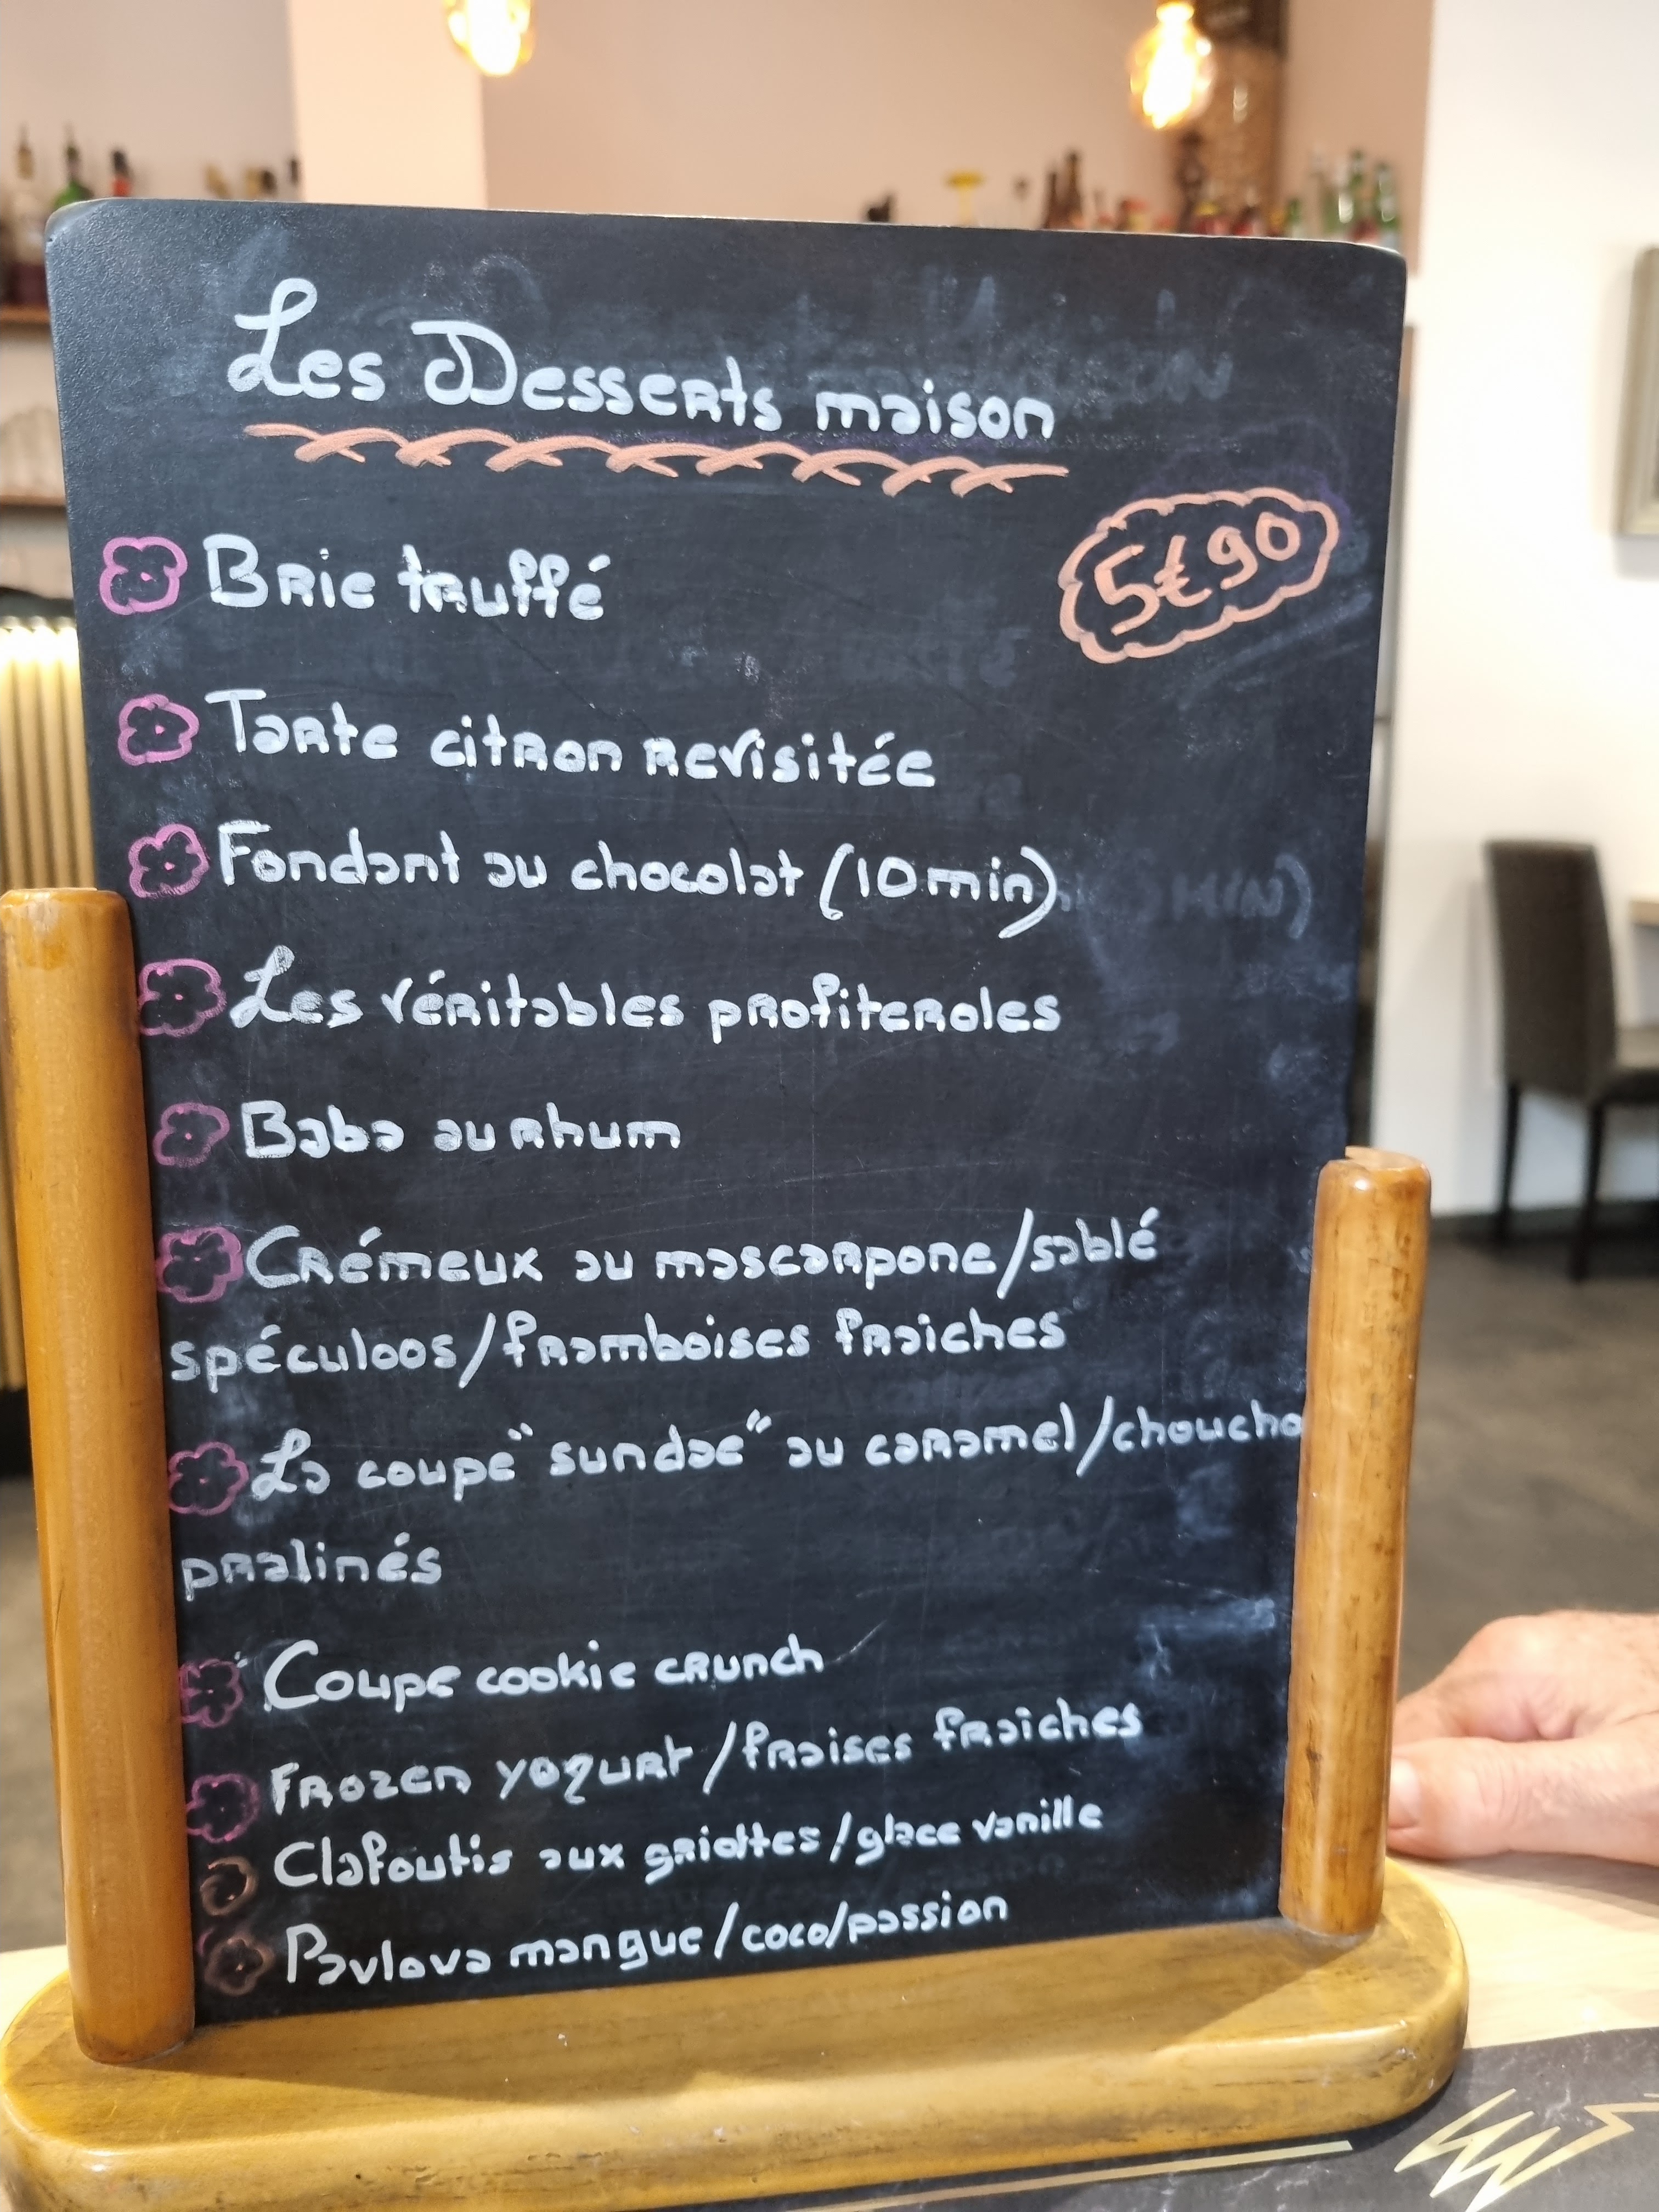 Les Desserts maison
5€90
Brie truffé
Tarte citron revisitée
Fondant au chocolat (10min)
Les véritables profiteroles
Baba au rhum
Crémeux au mascarpone/sablé
spéculoos/framboises fraiches
La coupe "sundae" au caramel/choucho
pralinés
Coupe cookie crunch
Frozen yogurt/fraises fraîches
Clafoutis aux griottes/glace vanille
Pavlova mangue/coco/passion